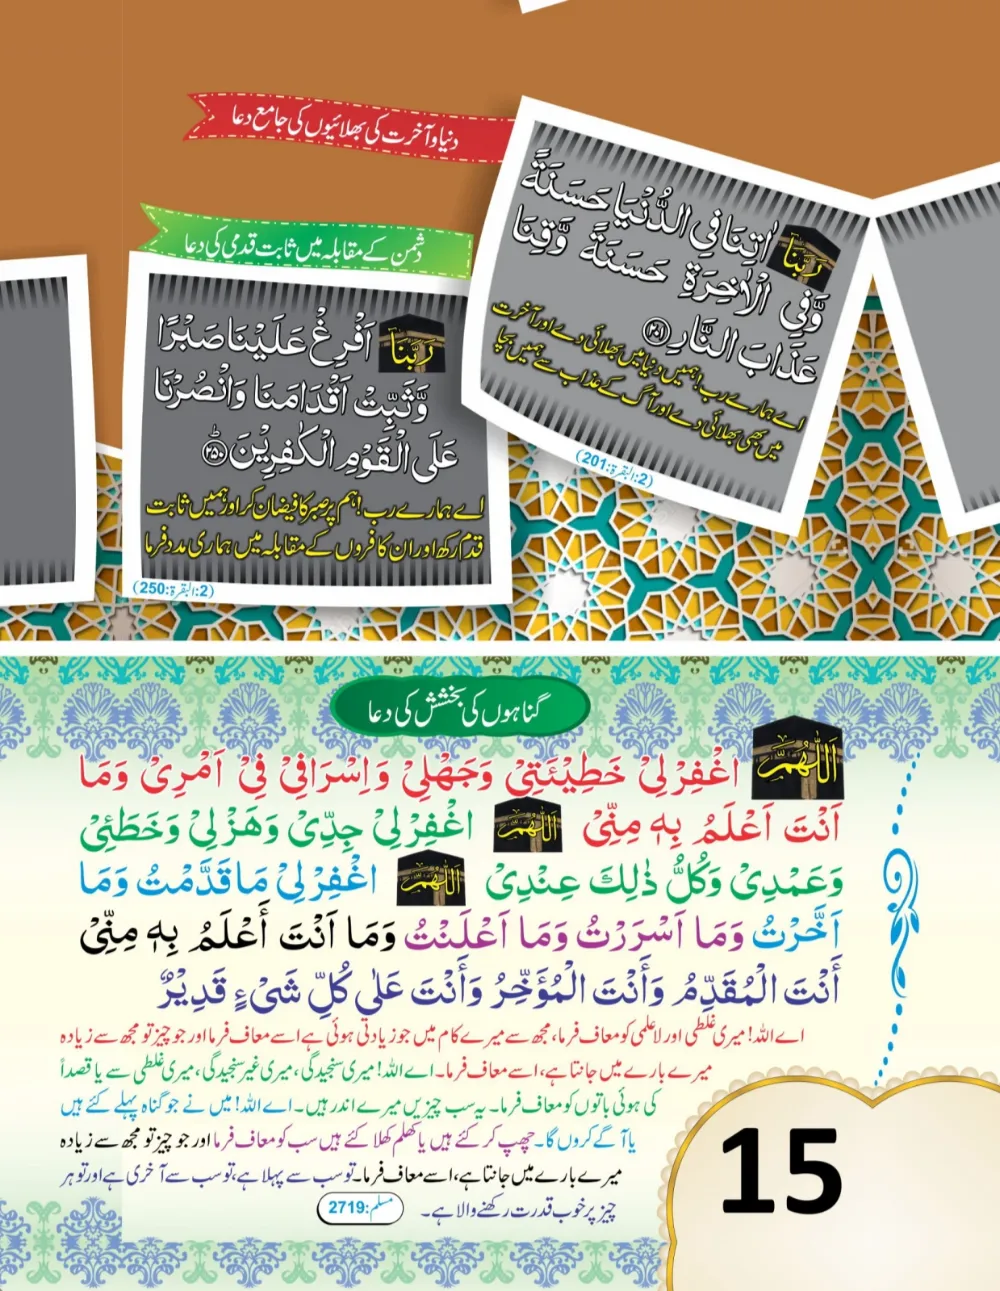 دنیا و آخرت کی بھلائیوں کی جامع دعا
رَبَّنَا اٰتِنَا فِی الدُّنْیَا حَسَنَةً
وَّفِی الْاٰخِرَةِ حَسَنَةً وَّقِنَا
عَذَابَ النَّارِ ﴿۲۰۱﴾
اے ہمارے رب! ہمیں دنیا میں بھلائی دے اور آخرت
میں بھی بھلائی دے اور آگ کے عذاب سے ہمیں بچا
(2:البقرة:201)
دشمن کے مقابلہ میں ثابت قدمی کی دعا
رَبَّنَا اَفْرِغْ عَلَیْنَا صَبْرًا
وَّثَبِّتْ اَقْدَامَنَا وَانْصُرْنَا
عَلَی الْقَوْمِ الْکٰفِرِیْنَ ﴿۲۵۰﴾ؕ
اے ہمارے رب! ہم پر صبر کا فیضان کر اور ہمیں ثابت
قدم رکھ اور ان کافروں کے مقابلہ میں ہماری مدد فرما
(2:البقرة:250)
گناہوں کی بخشش کی دعا
اَللّٰهُمَّ اغْفِرْ لِیْ خَطِیْئَتِیْ وَجَهْلِیْ وَاِسْرَافِیْ فِیْ اَمْرِیْ وَمَا
اَنْتَ اَعْلَمُ بِهٖ مِنِّیْ اَللّٰهُمَّ اغْفِرْ لِیْ جِدِّیْ وَهَزْلِیْ وَخَطَئِیْ
وَعَمْدِیْ وَکُلُّ ذٰلِكَ عِنْدِیْ اَللّٰهُمَّ اغْفِرْ لِیْ مَا قَدَّمْتُ وَمَا
اَخَّرْتُ وَمَا اَسْرَرْتُ وَمَا اَعْلَنْتُ وَمَا اَنْتَ أَعْلَمُ بِهٖ مِنِّیْ
أَنْتَ الْمُقَدِّمُ وَأَنْتَ الْمُؤَخِّرُ وَأَنْتَ عَلٰی کُلِّ شَیْءٍ قَدِیْرٌ
اے اللہ! میری غلطی اور لاعلمی کو معاف فرما، مجھ سے میرے کام میں جو زیادتی ہوئی ہے اسے معاف فرما اور جو چیز تو مجھ سے زیادہ
میرے بارے میں جانتا ہے، اسے معاف فرما۔ اے اللہ! میری سنجیدگی، میری غیر سنجیدگی، میری غلطی سے یا قصداً
کی ہوئی باتوں کو معاف فرما۔ یہ سب چیزیں میرے اندر ہیں۔ اے اللہ! میں نے جو گناہ پہلے کئے ہیں
یا آگے کروں گا۔ چھپ کر کئے ہیں یا کھلم کھلا کئے ہیں سب کو معاف فرما اور جو چیز تو مجھ سے زیادہ
میرے بارے میں جانتا ہے، اسے معاف فرما۔ تو سب سے پہلا ہے، تو سب سے آخری ہے اور تو ہر
چیز پر خوب قدرت رکھنے والا ہے۔ مسلم:2719
15